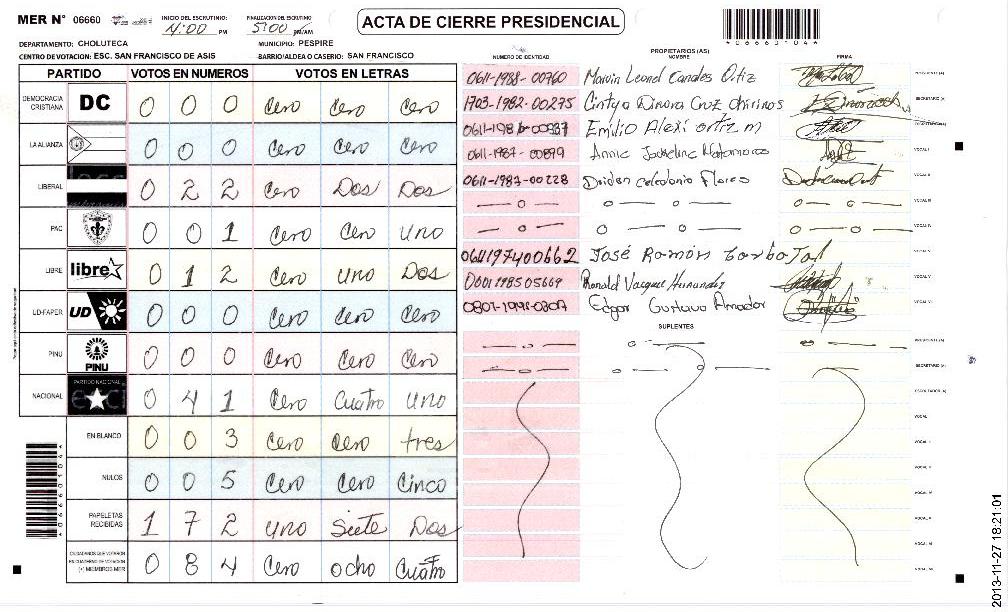 MER N° 06660
INICIO DEL ESCRUTINIO
4:00 PM
FINALIZACION DEL ESCRUTINIO
5:00 PM/AM
ACTA DE CIERRE PRESIDENCIAL
*06660104*
DEPARTAMENTO: CHOLUTECA
MUNICIPIO: PESPIRE
CENTRO DE VOTACION: ESC. SAN FRANCISCO DE ASIS
BARRIO/ALDEA O CASERIO: SAN FRANCISCO
PARTIDO VOTOS EN NUMEROS VOTOS EN LETRAS
DEMOCRACIA CRISTIANA DC 0 0 0 Cero Cero Cero
LA ALIANZA 0 0 0 Cero Cero Cero
LIBERAL 0 2 2 Cero Dos Dos
PAC 0 0 1 Cero Cero Uno
LIBRE libre 0 1 2 Cero Uno Dos
UD-FAPER UD 0 0 0 Cero Cero Cero
PINU PINU 0 0 0 Cero Cero Cero
NACIONAL PARTIDO NACIONAL 0 4 1 Cero Cuatro Uno
EN BLANCO 0 0 3 Cero Cero tres
NULOS 0 0 5 Cero Cero Cinco
PAPELETAS RECIBIDAS 1 7 2 Uno Siete Dos
CIUDADANOS QUE VOTARON EN CUADERNO DE VOTACION (+) MIEMBROS MER 0 8 4 Cero ocho Cuatro
PROPIETARIOS (AS)
NUMERO DE IDENTIDAD NOMBRE FIRMA
0611-1988-00760 Marvin Leonel Canales Ortiz PRESIDENTE (A)
1703-1982-00275 Cintya Dinora Cruz Chirinos SECRETARIO (A)
Emilio Alexi ortiz m
0611-1987-00899 Annie Jackeline Matamoros VOCAL I
0611-1983-00228 Celedonio Flores VOCAL II
VOCAL III
VOCAL IV
0611197400662 José Ramón VOCAL V
Ronald Vasquez Hernandez VOCAL VI
Edgar Gustavo Amador
SUPLENTES
PRESIDENTE (A)
SECRETARIO (A)
2013-11-27 18:21:01